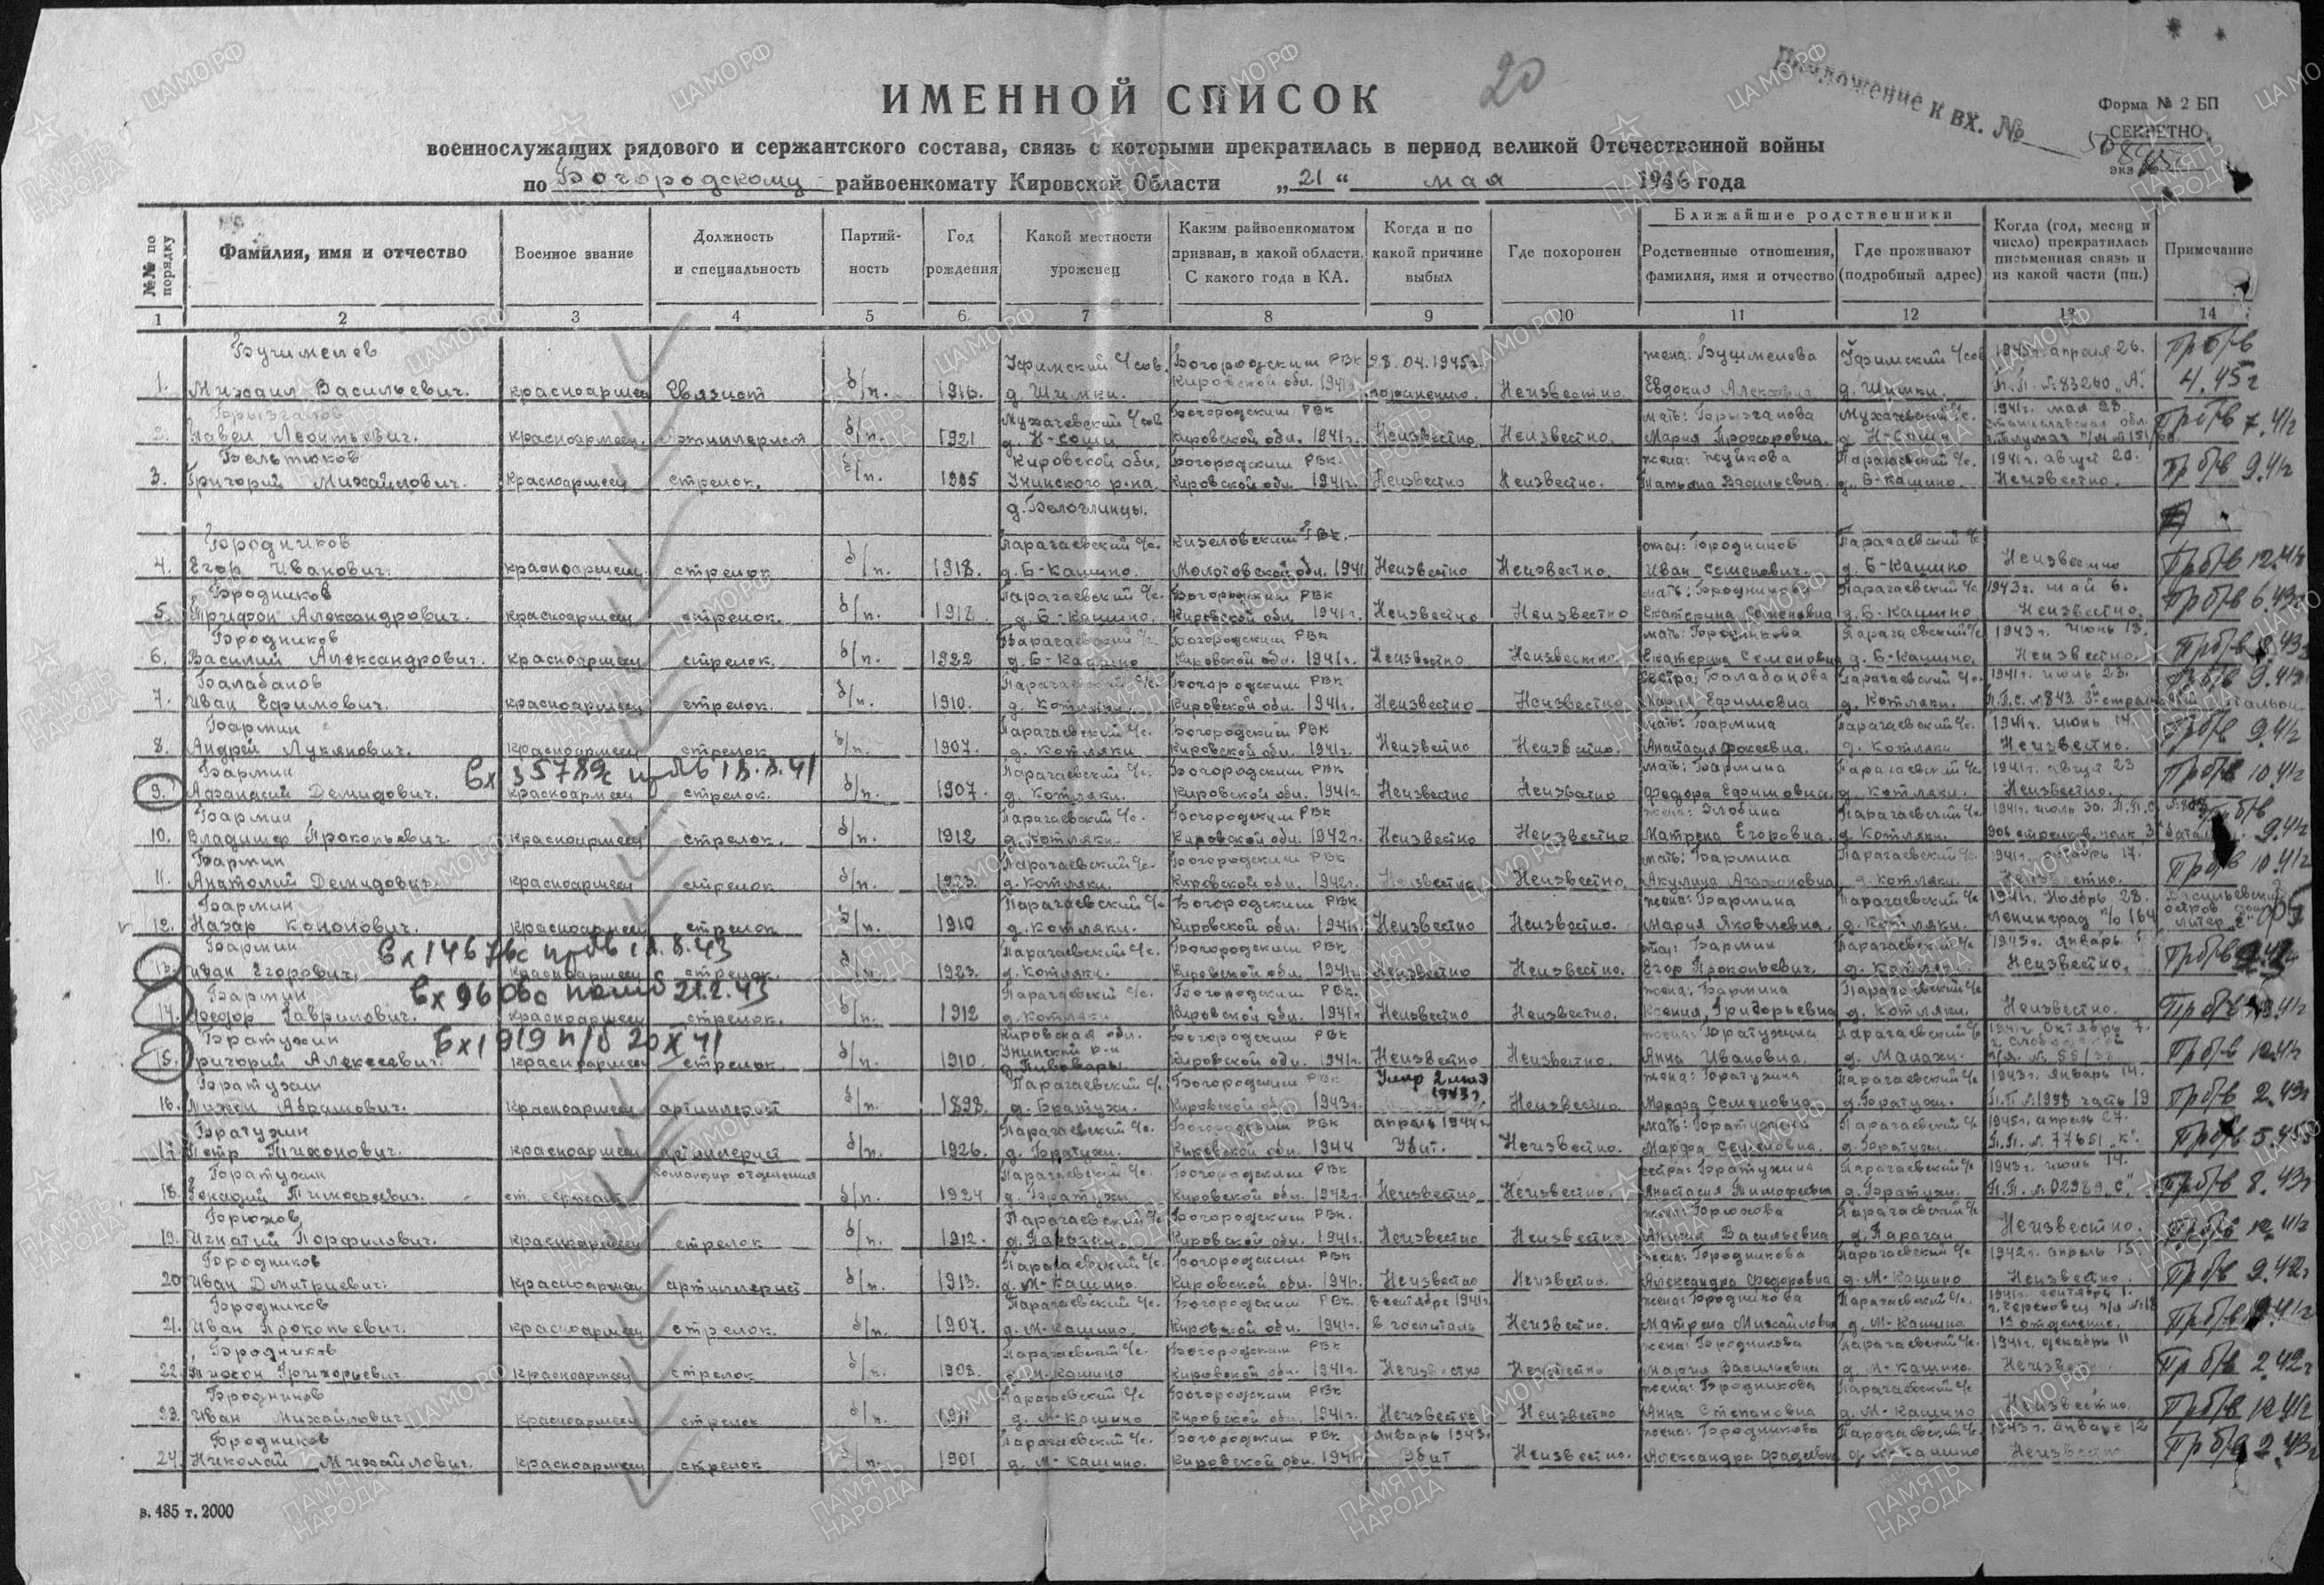 20
Приложение к вх. №
Форма № 2 БП
СЕКРЕТНО
экз
ИМЕННОЙ СПИСОК
военнослужащих рядового и сержантского состава, связь с которыми прекратилась в период великой Отечественной войны
по Богородскому райвоенкомату Кировской Области „21“ мая 1946 года
№№ по порядку | Фамилия, имя и отчество | Военное звание | Должность и специальность | Партий-ность | Год рождения | Какой местности уроженец | Каким райвоенкоматом призван, в какой области, С какого года в КА. | Когда и по какой причине выбыл | Где похоронен | Ближайшие родственники | Родственные отношения, фамилия, имя и отчество | Где проживают (подробный адрес) | Когда (год, месяц и число) прекратилась письменная связь и из какой части (пп.) | Примечание
1 2 3 4 5 6 7 8 9 10 11 12 13 14
1. Михаил Васильевич. красноармеец Связист б/п. 1916. д. Шумки. Богородским РВК Кировской обл. 1941 28.04.1945г. Неизвестно жена: Евдокия д. Шумки. 1945г. апреля 26. П.П. №83260 „А“ Пр б/в 4.45г
2. Павел Леонтьевич. красноармеец б/п. 1921 Богородским РВК Кировской обл. 1941г. Неизвестно. Неизвестно. мать: Мария Прохоровна. 1941г. мая 28. Пр б/в 7.41г
3. Вельтюков Григорий Михайлович. красноармеец стрелок. б/п. 1905 Кировской обл. Унинского р-на д. Белоглинцы. Богородским РВК Кировской обл. 1941г. Неизвестно Неизвестно. жена: Татьяна Васильевна. Парагаевский с/с. д. Б-Кашино. 1941г. август 20. Неизвестно. Пр б/в 9.41г
4. Бродников Егор Иванович. красноармеец стрелок б/п. 1918. Парагаевский с/с. д. Б-Кашино. Кизеловским РВК. Молотовской обл. 1941 Неизвестно Неизвестно. отец: Бродников Иван Семенович. Парагаевский с/с д. Б-Кашино Неизвестно Пр б/в 12.41г
5. Бродников Трифон Александрович. красноармеец стрелок. б/п. 1918 Парагаевский с/с. д. Б-Кашино. Богородским РВК Кировской обл. 1941г. Неизвестно Неизвестно мать: Бродникова Екатерина Семеновна Парагаевский с/с д. Б-Кашино 1943г. май 6. Неизвестно. Пр б/в 6.43г
6. Бродников Василий Александрович. красноармеец стрелок. б/п. 1922 Парагаевский с/с. д. Б-Кашино Богородским РВК Кировской обл. 1941г. Неизвестно Неизвестно мать: Бродникова Екатерина Семеновна Парагаевский с/с д. Б-Кашино. 1943г. июнь 13. Неизвестно. Пр б/в 8.43г
7. Балабанов Иван Ефимович. красноармеец стрелок. б/п. 1910. Парагаевский с/с. д. Котляки. Богородским РВК Кировской обл. 1941г. Неизвестно Неизвестно сестра: Балабанова Мария Ефимовна Парагаевский с/с. д. Котляки. 1941г. июнь 23. П.П.С. №843 Пр б/в 9.41г
8. Бармин Андрей Лукянович. красноармеец стрелок б/п. 1907. Парагаевский с/с. д. Котляки Богородским РВК Кировской обл. 1941г. Неизвестно Неизвестно. мать: Бармина Анастасия Фокеевна. Парагаевский с/с. д. Котляки 1941г. июнь 14. Неизвестно. Пр б/в 9.41г
9. Бармин Афанасий Демидович. красноармеец стрелок. б/п. 1907. Парагаевский с/с. д. Котляки. Богородским РВК Кировской обл. 1941г Неизвестно Неизвестно мать: Бармина Федора Ефимовна. Парагаевский с/с д. Котляки. 1941г. август 23 Неизвестно. Пр б/в 10.41г
10. Бармин Владимир Прокопьевич. красноармеец стрелок. б/п. 1912 Парагаевский с/с. д. Котляки. Богородским РВК Кировской обл. 1942г. Неизвестно Неизвестно жена: Злобина Матрена Егоровна. Парагаевский с/с д. Котляки. 1941г. июль 30. Пр б/в 9.41г
11. Бармин Анатолий Демидович. красноармеец стрелок б/п. 1923. Парагаевский с/с. д. Котляки. Богородским РВК Кировской обл. 1942г. Неизвестно Неизвестно. мать: Бармина Акулина Агафоновна Парагаевский с/с. д. Котляки. Неизвестно. Пр б/в 10.41г
12. Бармин Назар Кононович. красноармеец стрелок б/п. 1910 Парагаевский с/с д. Котляки. Богородским РВК Кировской обл. 1941г Неизвестно Неизвестно. жена: Бармина Мария Яковлевна. Парагаевский с/с д. Котляки. 1941г. Ноябрь 28. Ленинград п/о 164
13. Бармин Иван Егорович. красноармеец стрелок. б/п. 1923. Парагаевский с/с. д. Котляки. Богородским РВК Кировской обл. 1941г Неизвестно Неизвестно. отец: Бармин Егор Прокопьевич. Парагаевский с/с д. Котляки. 1943г. январь Неизвестно. Пр б/в
14. Бармин Федор Гаврилович. красноармеец стрелок. б/п. 1912 Парагаевский с/с. д. Котляки Богородским РВК. Кировской обл. 1941г Неизвестно Неизвестно. жена: Бармина Ксения Григорьевна Парагаевский с/с д. Котляки. Неизвестно. Пр б/в
15. Братухин Григорий Алексеевич. красноармеец стрелок б/п. 1910. Кировская обл. Унинский р-н д. Пивовары Богородским РВК Кировской обл. 1941г. Неизвестно Неизвестно. жена: Братухина Анна Ивановна. Парагаевский с/с д. Малахи. 1941г. Октябрь 7. Пр б/в 12.41г
16. Братухин Абрамович. красноармеец артиллерист б/п. 1898. Парагаевский с/с. д. Братухи. Богородским РВК Кировской обл. 1943г. Умер 1943г. Неизвестно. жена: Братухина Марфа Семеновна Парагаевский с/с д. Братухи. 1943г. январь 14. П.П. №1998 часть 19 Пр б/в 2.43г
17. Братухин Петр Тихонович. красноармеец артиллерист б/п. 1926. Парагаевский с/с. д. Братухи. Богородским РВК Кировской обл. 1944 апрель 1944г. Убит. Неизвестно. мать: Братухина Марфа Семеновна. Парагаевский с/с д. Братухи. 1945г. апрель 27. П.П. №77651 „К“. Пр б/в 5.45г
18. Братухин Генадий Тимофеевич. ст. сержант Командир отделения б/п. 1924 Парагаевский с/с. д. Братухи. Богородским РВК Кировской обл. 1942г. Неизвестно Неизвестно. сестра: Братухина Анастасия Тимофеевна Парагаевский с/с д. Братухи. 1943г. июнь 14. П.П. №02969 „С“ Пр б/в 8.43г
19. Брюхов Игнатий Порфилович. красноармеец стрелок б/п. 1912. Парагаевский с/с. д. Парагаи Богородским РВК. Кировской обл. 1941г. Неизвестно Неизвестно жена: Брюхова Васильевна Парагаевский с/с д. Парагаи Неизвестно. Пр б/в 12.41г
20. Бродников Иван Дмитриевич. красноармеец артиллерист б/п. 1913. Парагаевский с/с. д. М-Кашино. Богородским РВК Кировской обл. 1941г. Неизвестно Неизвестно. жена: Бродникова Александра Федоровна Парагаевский с/с д. М-Кашино 1942г. апрель 15 Неизвестно. Пр б/в 9.42г
21. Бродников Иван Прокопьевич. красноармеец стрелок. б/п. 1907. Парагаевский с/с. д. М-Кашино. Богородским РВК. Кировской обл. 1941г. в сентябре 1941г. в госпиталь Неизвестно. жена: Бродникова Матрена Михайловна Парагаевский с/с. д. М-Кашино. 1941г. сентябрь 1. г. Череповец Пр б/в
22. Бродников Тихон Григорьевич. красноармеец стрелок б/п. 1903. Парагаевский с/с. д. М-Кашино Богородским РВК Кировской обл. 1941г. Неизвестно Неизвестно жена: Бродникова Мария Васильевна Парагаевский с/с. д. М-Кашино. 1941г. декабрь 11 Неизвестно. Пр б/в 2.42г
23. Бродников Иван Михайлович. красноармеец стрелок б/п. 1911 Парагаевский с/с д. М-Кашино Богородским РВК Кировской обл. 1941г. Неизвестно Неизвестно жена: Бродникова Анна Степановна Парагаевский с/с д. М-Кашино Неизвестно. Пр б/в 12.41г
24. Бродников Николай Михайлович. красноармеец стрелок б/п. 1901 Парагаевский с/с. д. М-Кашино. Богородским РВК Кировской обл. 1941г январь 1943г. Убит Неизвестно. жена: Бродникова Александра Фадеевна Парагаевский с/с. д. М-Кашино 1943г. январе 12 Неизвестно Пр б/в 2.43г
в. 485 т. 2000